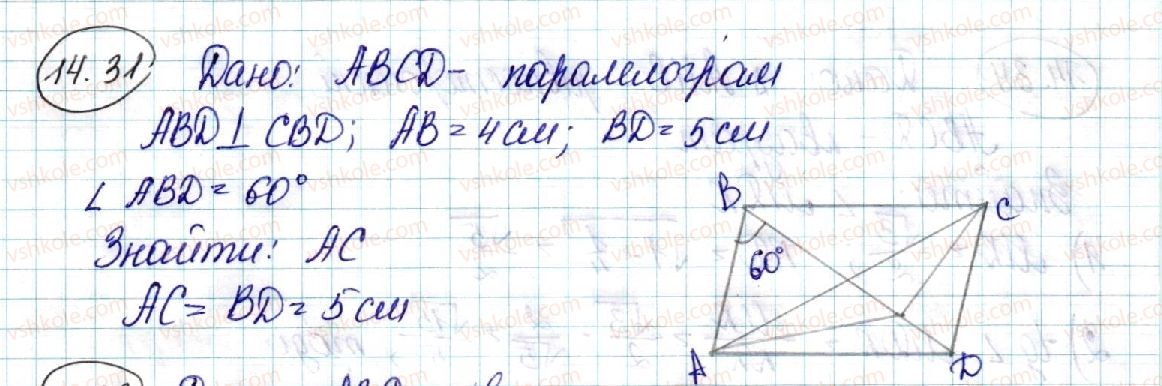 14.31 Дано: ABCD - паралелограм
ABD ⊥ CBD; AB = 4 см; BD = 5 см
∠ ABD = 60°
Знайти: AC
AC = BD = 5 см
B
C
60°
A
D
vshkole.com